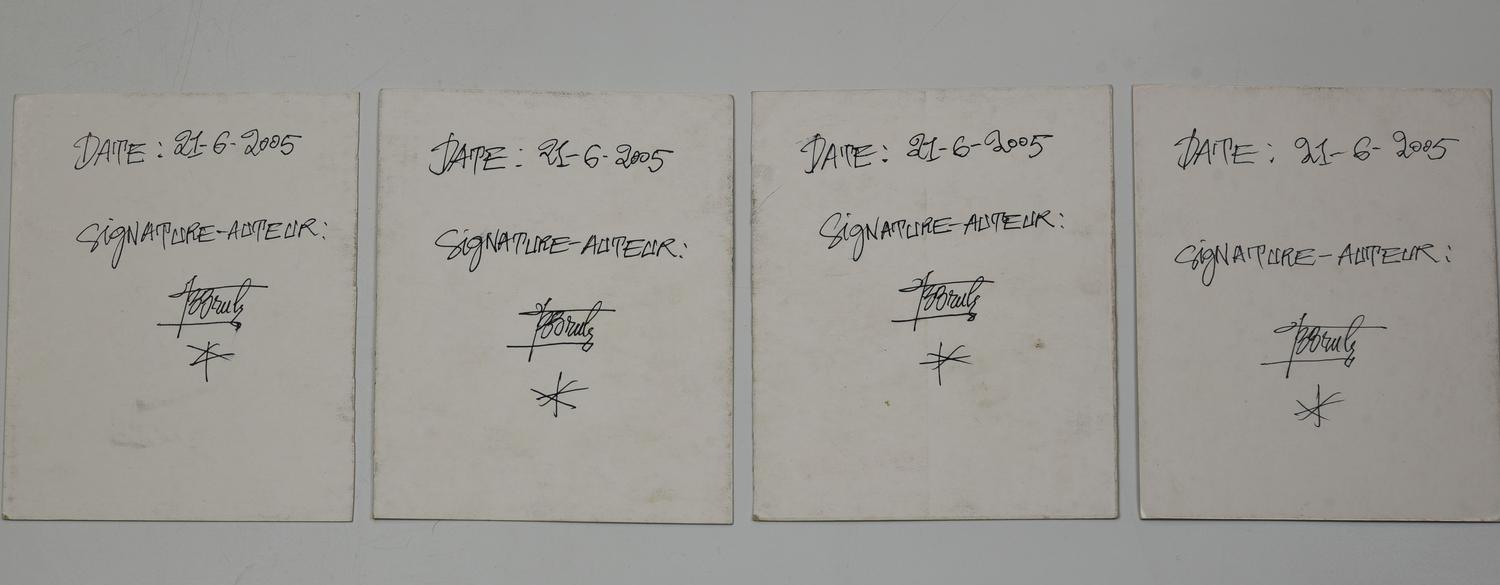 DATE : 21-6-2005
SIGNATURE-AUTEUR:
DATE : 21-6-2005
SIGNATURE-AUTEUR:
DATE : 21-6-2005
SIGNATURE-AUTEUR:
DATE : 21-6-2005
SIGNATURE-AUTEUR: